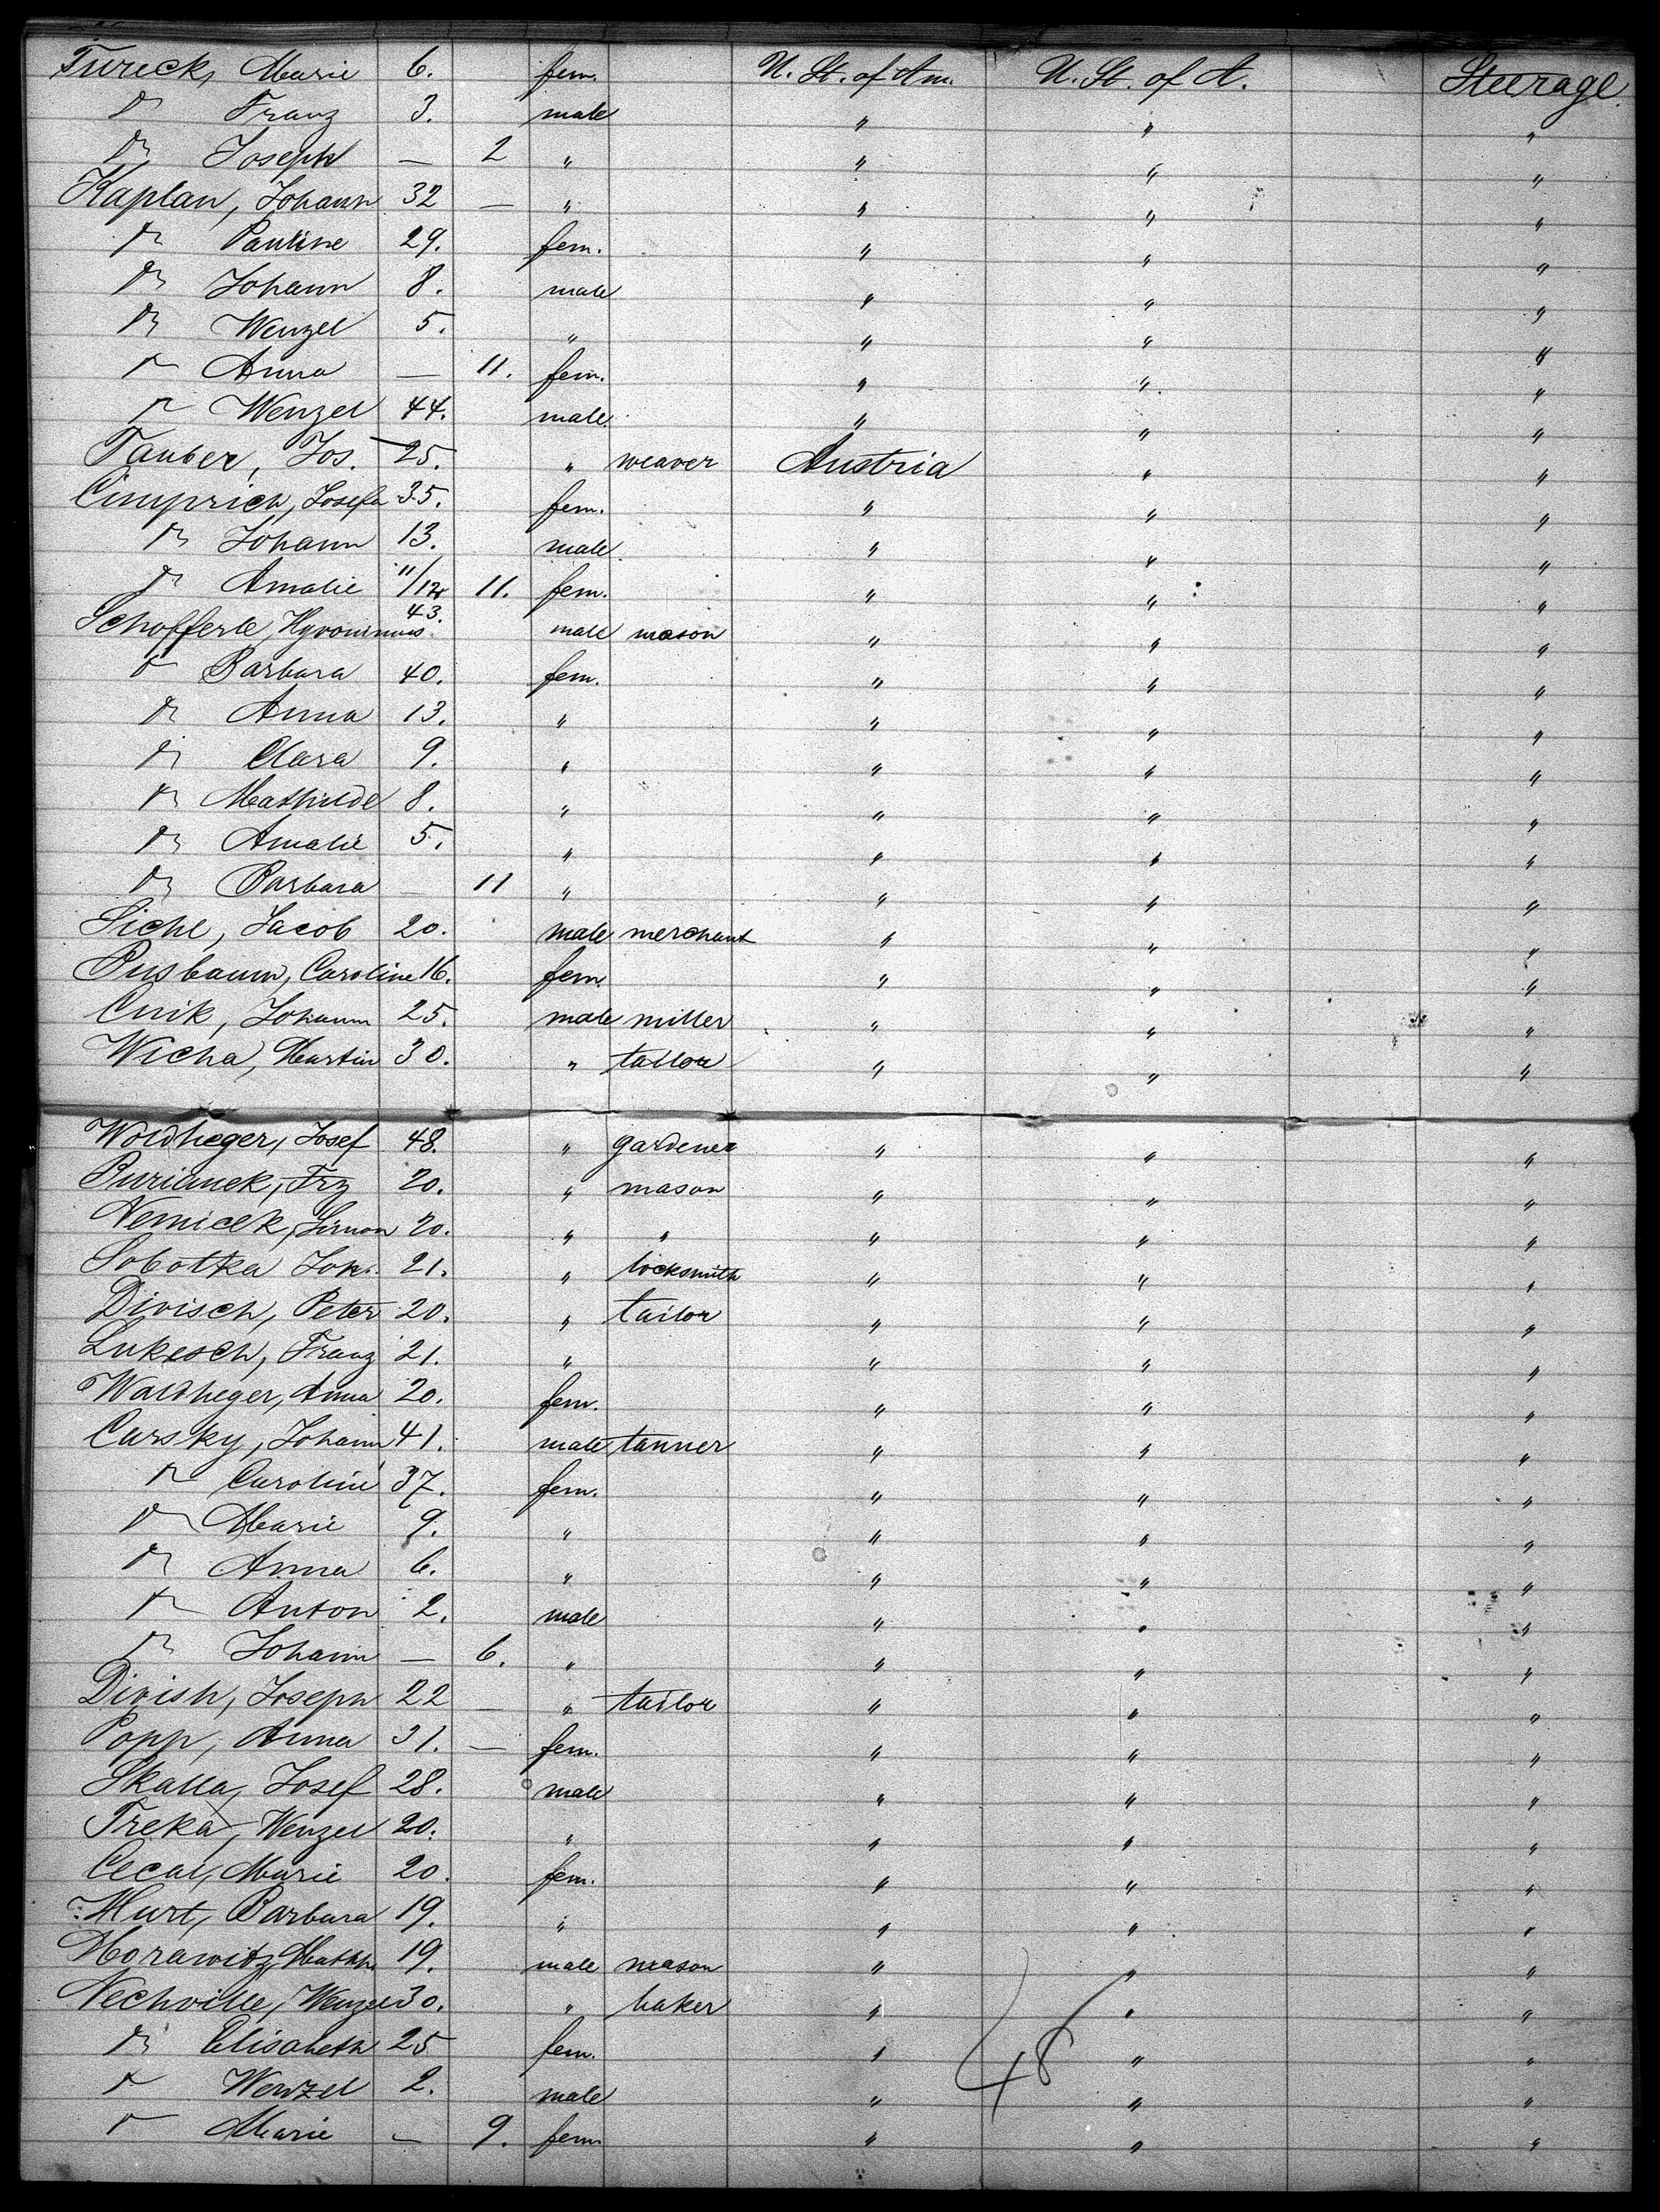 Tureck, Marie 6. fem. U. St. of Am. U. St. of A. Steerage
" Franz 3. male " " "
" Joseph — 2 " " " "
Kaplan, Johann 32 — " " " "
" Pauline 29. fem. " " "
" Johann 8. male " " "
" Wenzel 5. " " " "
" Anna — 11. fem. " " "
" Wenzel 44. male " " "
Tauber, Jos. 25. " weaver Austria " "
Cimprich, Josefa 35. fem. " " "
" Johann 13. male " " "
" Amalie 11/12 11. fem. " " "
Schofferle, Hyronimus 43. male mason " " "
" Barbara 40. fem. " " "
" Anna 13. " " " "
" Clara 9. " " " "
" Mathilde 8. " " " "
" Amalie 5. " " " "
" Barbara — 11 " " " "
Sichl, Jacob 20. male merchant " " "
Pusbaum, Caroline 16. fem. " " "
Cuik, Johann 25. male miller " " "
Wicha, Martin 30. " tailor " " "
Woldheger, Josef 48. " gardener " " "
Purianek, Frz 20. " mason " " "
Nemicek, Simon 20. " " " " "
Sobotka Joh. 21. " locksmith " " "
Divisch, Peter 20. " tailor " " "
Lukesch, Franz 21. " " " "
Waldheger, Anna 20. fem. " " "
Carsky, Johann 41. male tanner " " "
" Caroline 37. fem. " " "
" Marie 9. " " " "
" Anna 6. " " " "
" Anton 2. male " " "
" Johann — 6. " " " "
Divish, Joseph 22 — " tailor " " "
Popp, Anna 31. — fem. " " "
Skalla, Josef 28. male " " "
Treka, Wenzel 20. " " " "
Cecal, Marie 20. fem. " " "
Hurt, Barbara 19. " " " "
Morawitz, Math. 19. male mason " " "
Nechville, Wenzel 30. " baker " " "
" Elisabeth 25 fem. " " "
" Wenzel 2. male " " "
" Marie — 9. fem " " "
48